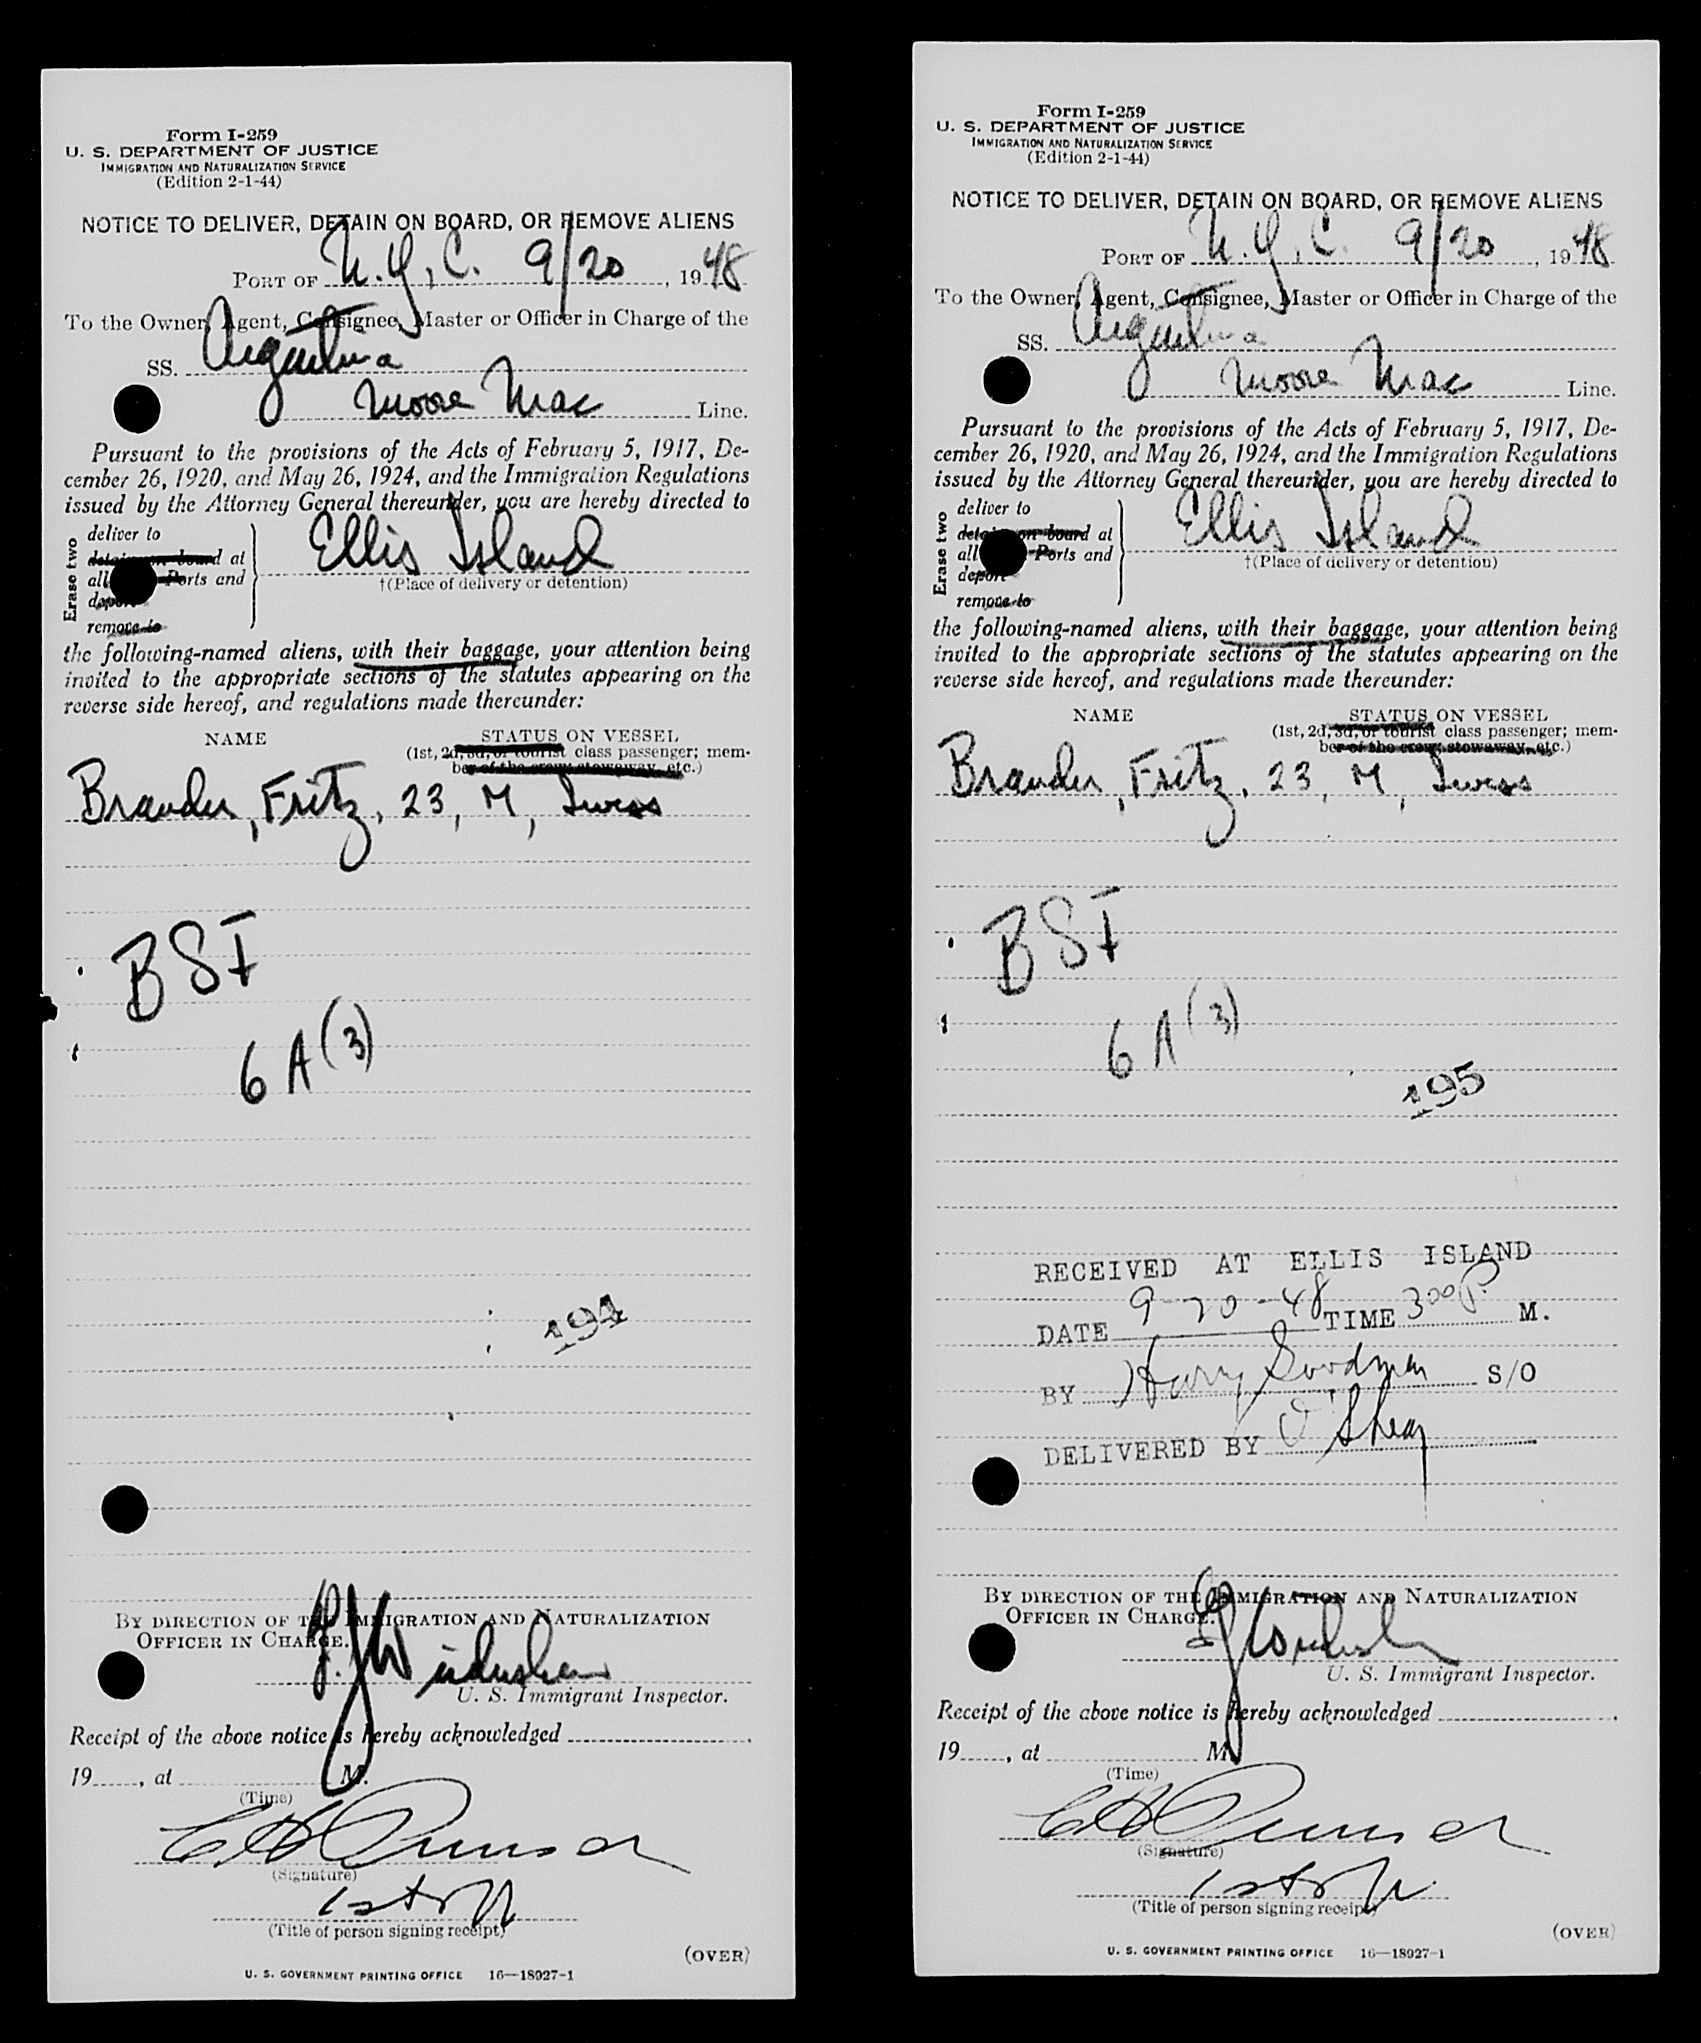 Form I-259
U. S. DEPARTMENT OF JUSTICE
IMMIGRATION AND NATURALIZATION SERVICE
(Edition 2-1-44)
NOTICE TO DELIVER, DETAIN ON BOARD, OR REMOVE ALIENS
PORT OF N.Y.C. 9/20, 1948
To the Owner, Agent, Consignee, Master or Officer in Charge of the
SS. Argentina
Moore Mac Line.
Pursuant to the provisions of the Acts of February 5, 1917, De-
cember 26, 1920, and May 26, 1924, and the Immigration Regulations
issued by the Attorney General thereunder, you are hereby directed to
Erase two
deliver to
detain on board at
all Ports and
deport
remove to
Ellis Island
†(Place of delivery or detention)
the following-named aliens, with their baggage, your attention being
invited to the appropriate sections of the statutes appearing on the
reverse side hereof, and regulations made thereunder:
NAME STATUS ON VESSEL
(1st, 2d, 3d, or tourist class passenger; mem-
ber of the crew, stowaway, etc.)
Brander, Fritz, 23, M, Swiss
BSI
6A(3)
194
BY DIRECTION OF THE IMMIGRATION AND NATURALIZATION
OFFICER IN CHARGE.
U. S. Immigrant Inspector.
Receipt of the above notice is hereby acknowledged
19, at M.
(Time)
(Signature)
1st Off
(Title of person signing receipt)
(OVER)
U. S. GOVERNMENT PRINTING OFFICE 16—18927-1
Form I-259
U. S. DEPARTMENT OF JUSTICE
IMMIGRATION AND NATURALIZATION SERVICE
(Edition 2-1-44)
NOTICE TO DELIVER, DETAIN ON BOARD, OR REMOVE ALIENS
PORT OF N.Y.C. 9/20, 1948
To the Owner, Agent, Consignee, Master or Officer in Charge of the
SS. Argentina
Moore Mac Line.
Pursuant to the provisions of the Acts of February 5, 1917, De-
cember 26, 1920, and May 26, 1924, and the Immigration Regulations
issued by the Attorney General thereunder, you are hereby directed to
Erase two
deliver to
detain on board at
all Ports and
deport
remove to
Ellis Island
†(Place of delivery or detention)
the following-named aliens, with their baggage, your attention being
invited to the appropriate sections of the statutes appearing on the
reverse side hereof, and regulations made thereunder:
NAME STATUS ON VESSEL
(1st, 2d, 3d, or tourist class passenger; mem-
ber of the crew, stowaway, etc.)
Brander, Fritz, 23, M, Swiss
BSI
6A(3)
195
RECEIVED AT ELLIS ISLAND
DATE 9-20-48 TIME 300 P. M.
BY Harry Goodman S/O
DELIVERED BY O'Shea
BY DIRECTION OF THE IMMIGRATION AND NATURALIZATION
OFFICER IN CHARGE.
U. S. Immigrant Inspector.
Receipt of the above notice is hereby acknowledged
19, at M.
(Time)
(Signature)
1st Off
(Title of person signing receipt)
(OVER)
U. S. GOVERNMENT PRINTING OFFICE 16—18927-1